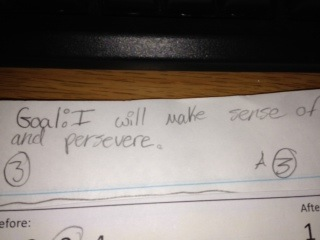 Goal: I will make sense of
and persevere.
3 A 3
efore:
Afte
1